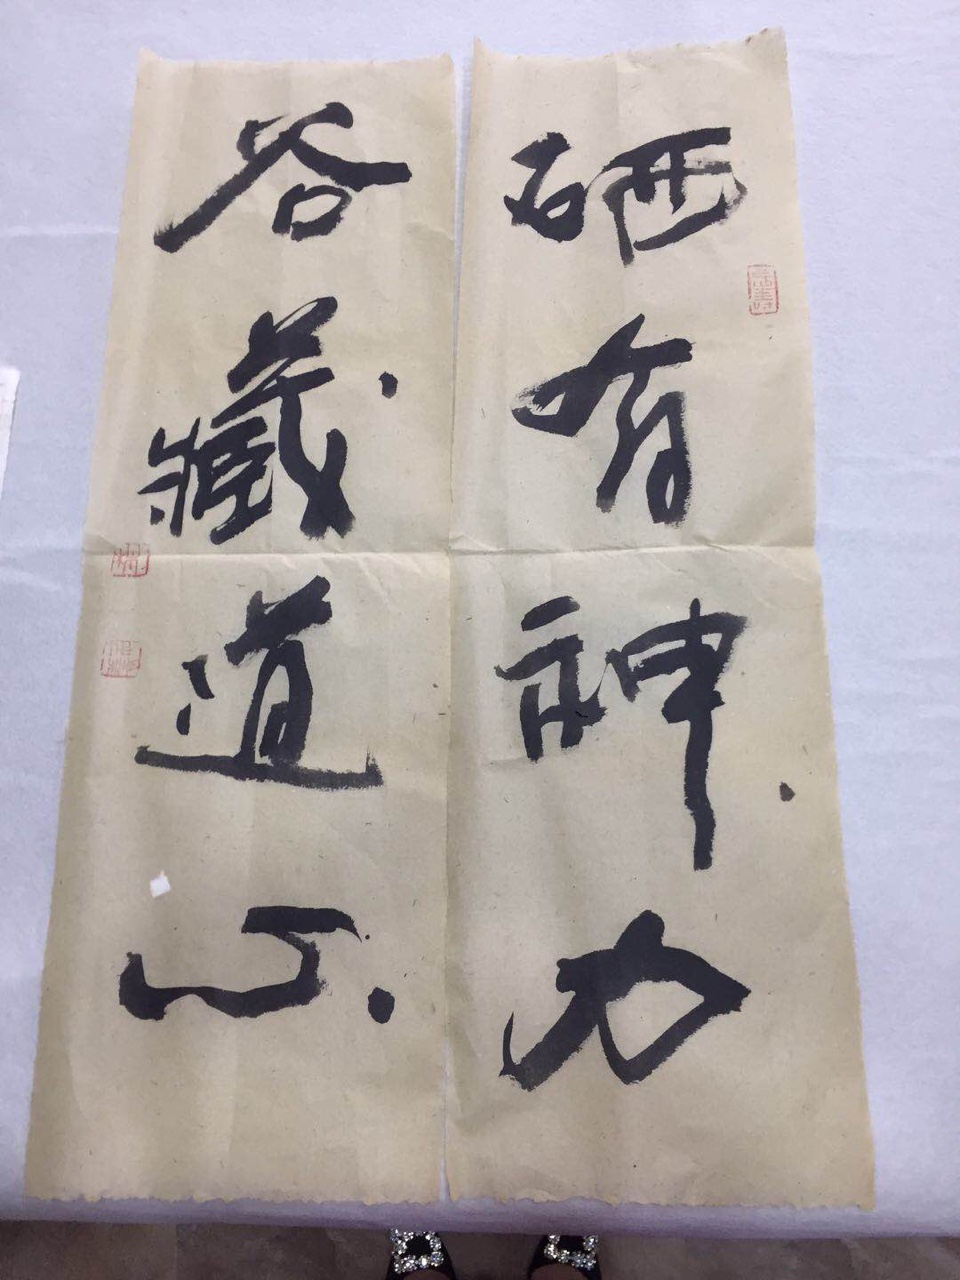 硒有神力
谷藏道心